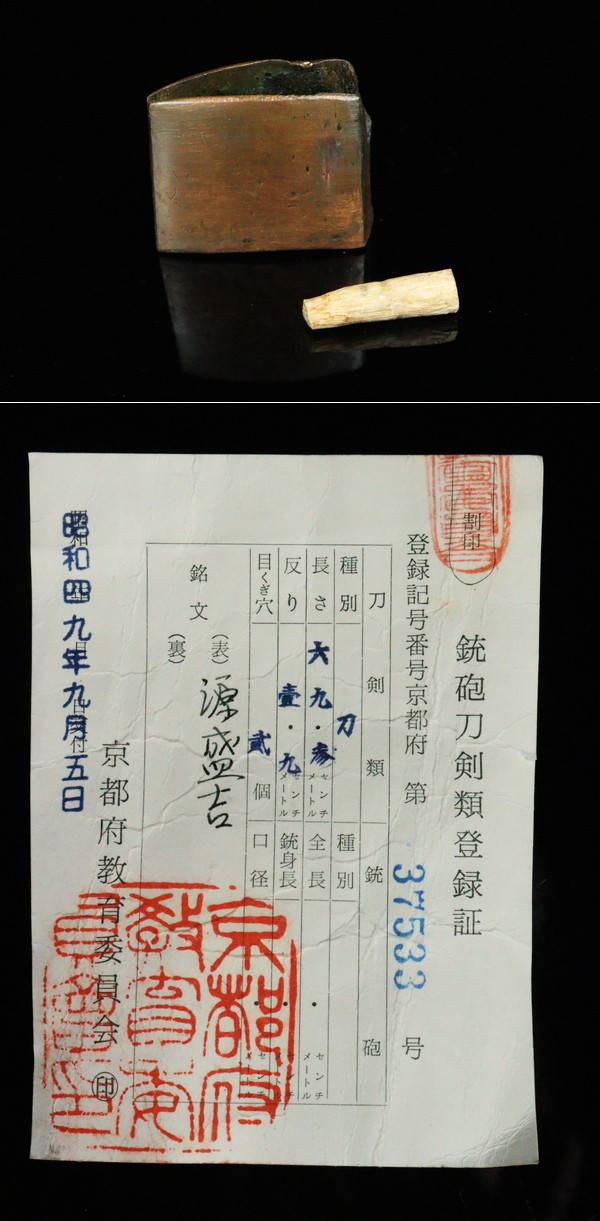 割印
銃砲刀剣類登録証
登録記号番号京都府 第 37533 号
刀剣類 銃砲
種別 刀 種別
長さ 六九・参 センチメートル 全長 ・ センチメートル
反り 壹・九 センチメートル 銃身長 ・ センチメートル
目くぎ穴 貳 個 口径 ・ センチメートル
銘文 (表) 源盛吉
(裏)
昭和四九年九月五日
京都府教育委員会 ㊞
京都府
教育委
員会印